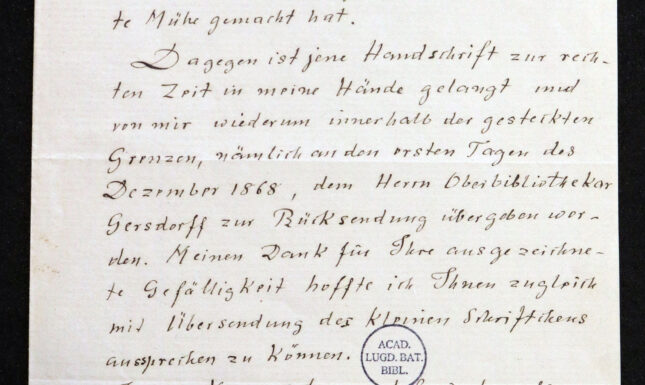 te Mühe gemacht hat.
Dagegen ist jene Handschrift zur rech-
ten Zeit in meine Hände gelangt und
von mir wiederum innerhalb der gesteckten
Grenzen, nämlich an den ersten Tagen des
Dezember 1868, dem Herrn Oberbibliothekar
Gersdorff zur Rücksendung übergeben wor-
den. Meinen Dank für Ihre ausgezeichne-
te Gefälligkeit hoffte ich Ihnen zugleich
mit Übersendung des kleinen Schriftchens
aussprechen zu können.
ACAD.
LUGD. BAT.
BIBL.